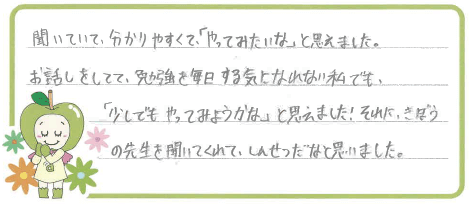 聞いていて、分かりやすくて、「やってみたいな」と思えました。
お話しをしてて、勉強を毎日する気になれない私でも、
「少しでもやってみようかな」と思えました！それに、きぼう
の先生を聞いてくれて、しんせつだなと思いました。